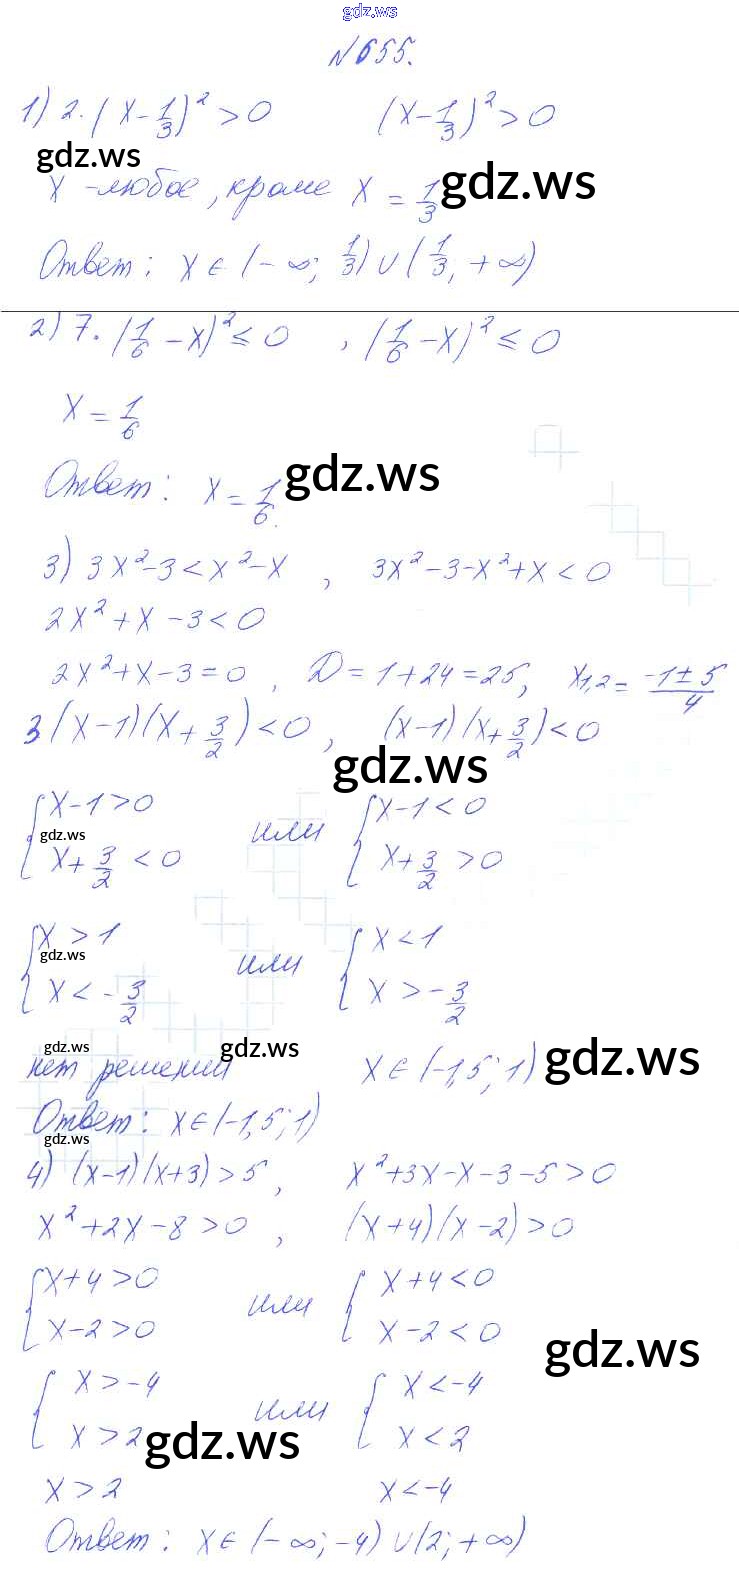 gdz.ws
№655.
1) 2·(x-1/3)² > 0 (x-1/3)² > 0
gdz.ws
x -любое, кроме x = 1/3 gdz.ws
Ответ: x ∈ (-∞; 1/3) ∪ (1/3; +∞)
2) 7·(1/6 - x)² ≤ 0 , (1/6 - x)² ≤ 0
x = 1/6
Ответ: x = 1/6. gdz.ws
3) 3x²-3 < x²-x , 3x²-3-x²+x < 0
2x²+x-3 < 0
2x²+x-3=0 , D=1+24=25, x₁,₂ = (-1±5)/4
3(x-1)(x+3/2) < 0 , (x-1)(x+3/2) < 0
gdz.ws
{x-1>0 или {x-1<0
gdz.ws
x+3/2 < 0 x+3/2 > 0
{x > 1 или {x < 1
gdz.ws
x < -3/2 x > -3/2
gdz.ws gdz.ws gdz.ws
нет решений x ∈ (-1,5; 1)
Ответ: x ∈ (-1,5; 1)
gdz.ws
4) (x-1)(x+3) > 5 , x²+3x-x-3-5 > 0
x²+2x-8 > 0 , (x+4)(x-2) > 0
{x+4>0 или {x+4<0
x-2>0 x-2<0 gdz.ws
{x>-4 или {x<-4
x>2 gdz.ws x<2
x>2 x<-4
Ответ: x ∈ (-∞; -4) ∪ (2; +∞)